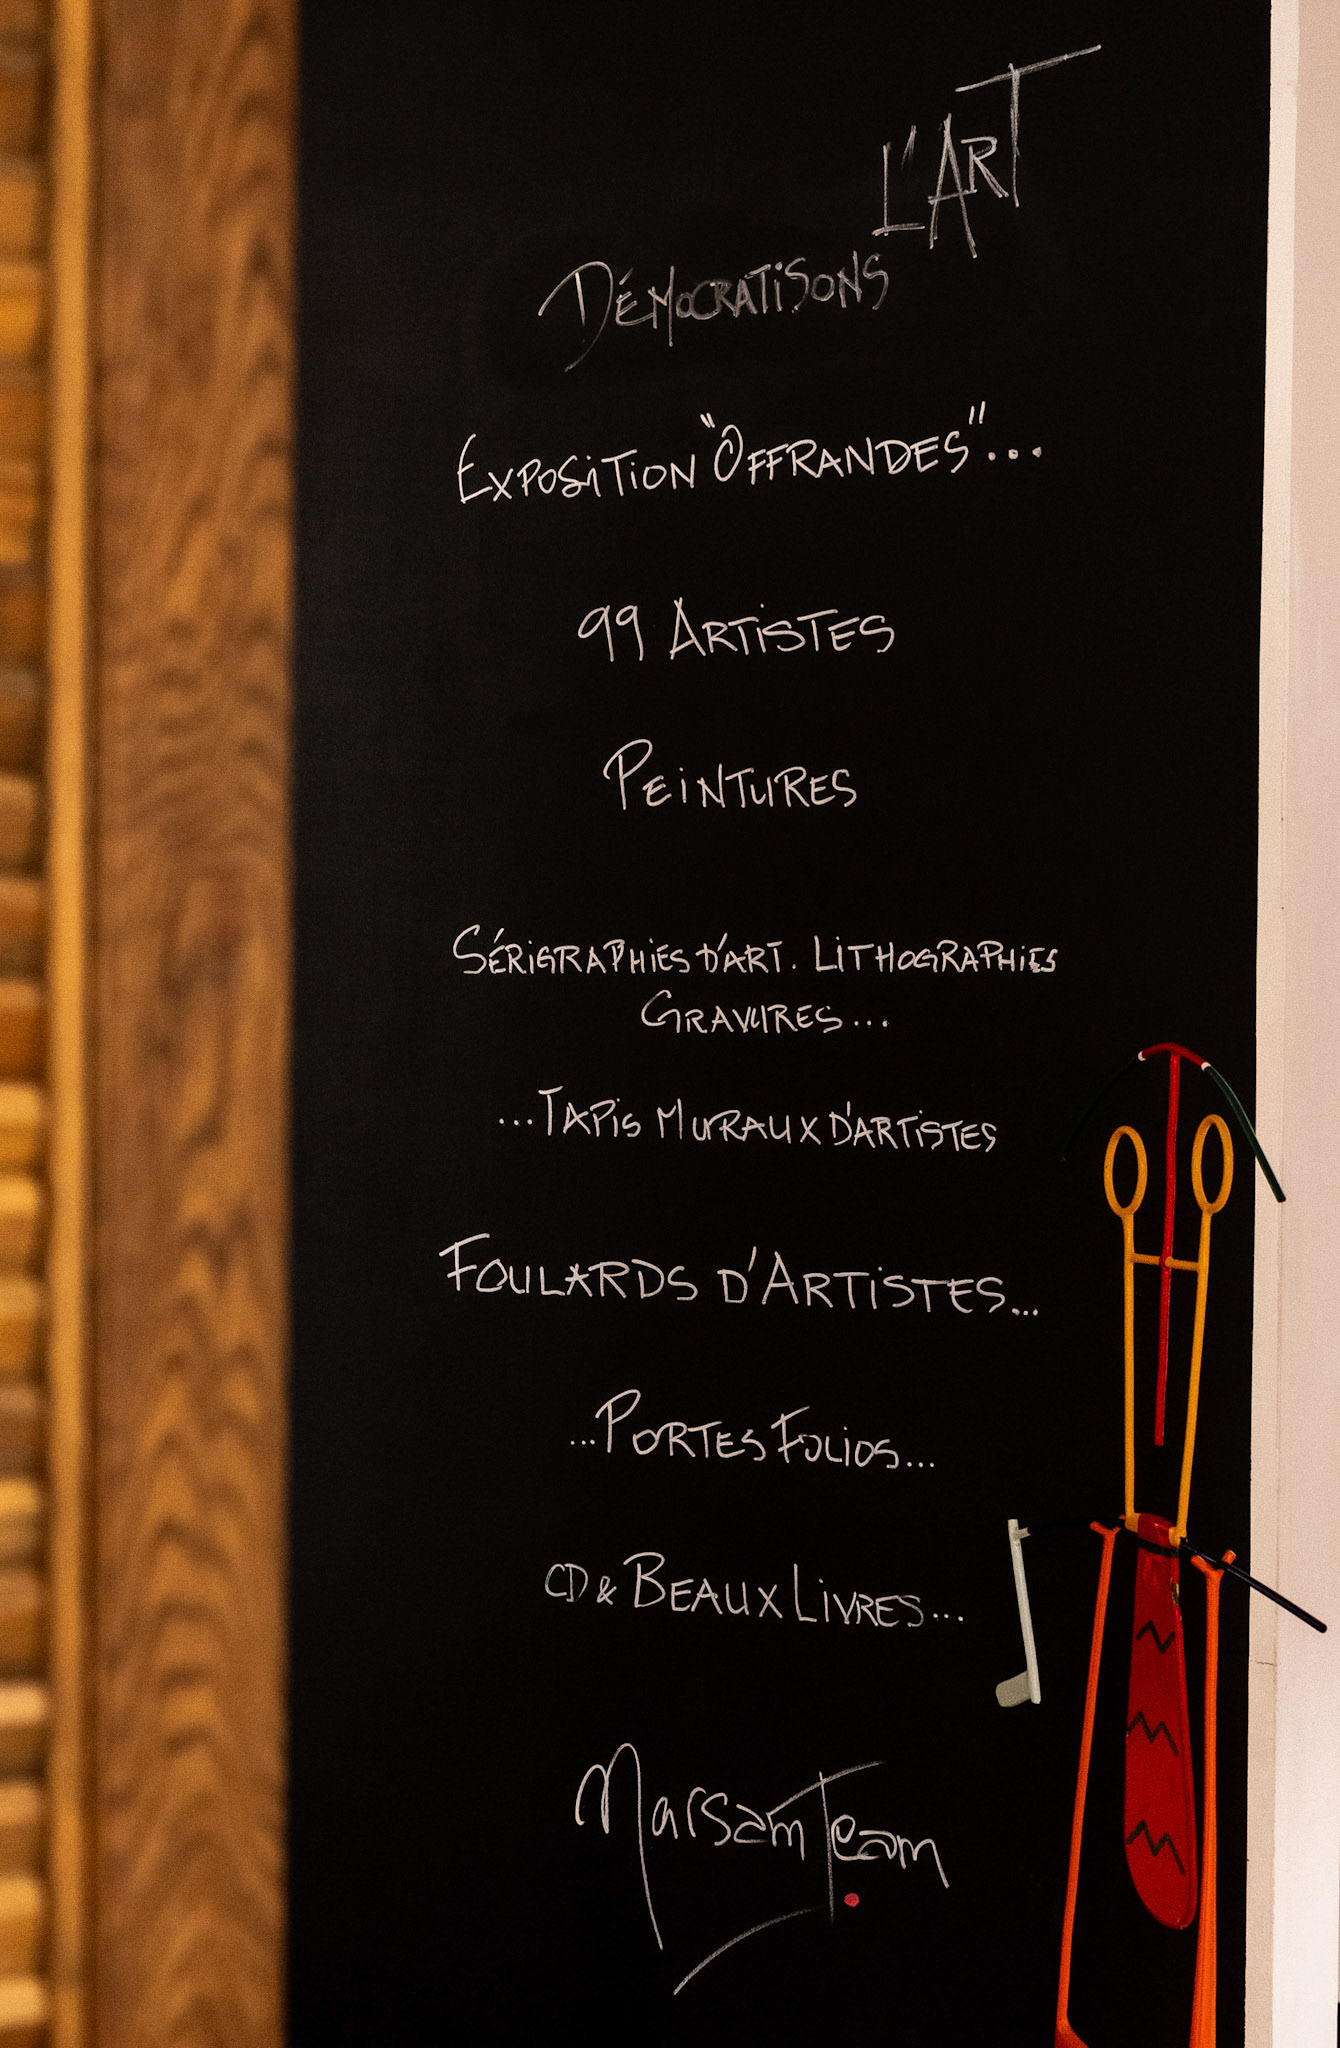 L'ART
DÉMOCRATISONS
EXPOSITION "OFFRANDES"...
99 ARTISTES
PEINTURES
SÉRIGRAPHIES D'ART. LITHOGRAPHIES
GRAVURES...
...TAPIS MURAUX D'ARTISTES
FOULARDS D'ARTISTES...
...PORTES FOLIOS...
CD & BEAUX LIVRES...
Marsam Team